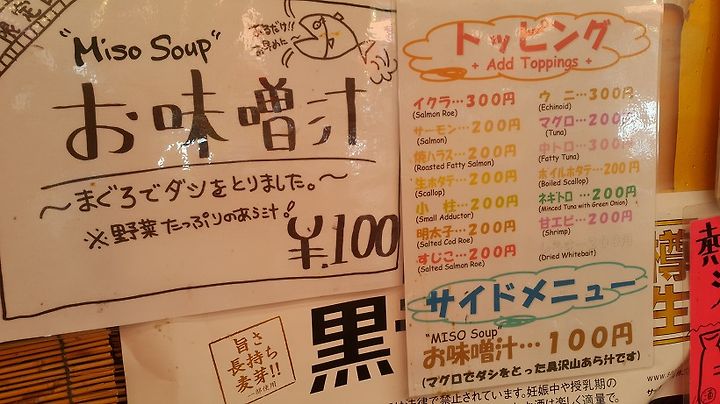 "Miso Soup"
あるだけ!!
お早めに〜
お味噌汁
〜まぐろでダシをとりました。〜
※野菜たっぷりのあら汁!
¥100
トッピング
+ Add Toppings +
イクラ…300円
(Salmon Roe)
サーモン…200円
(Salmon)
焼ハラス…200円
(Roasted Fatty Salmon)
生ホタテ…200円
(Scallop)
小 柱…200円
(Small Adductor)
明太子…200円
(Salted Cod Roe)
すじこ…200円
(Salted Salmon Roe)
ウ ニ…300円
(Echinoid)
マグロ…200円
(Tuna)
中トロ…300円
(Fatty Tuna)
ボイルホタテ…200円
(Boiled Scallop)
ネギトロ…200円
(Minced Tuna with Green Onion)
甘エビ…200円
(Shrimp)
(Dried Whitebait)
サイドメニュー
"MISO Soup"
お味噌汁…100円
(マグロでダシをとった具沢山あら汁です)
旨さ
長持ち
麦芽!!
一部使用
黒
樽
生
で禁止されています。妊娠中や授乳期の
は楽しく適量で。